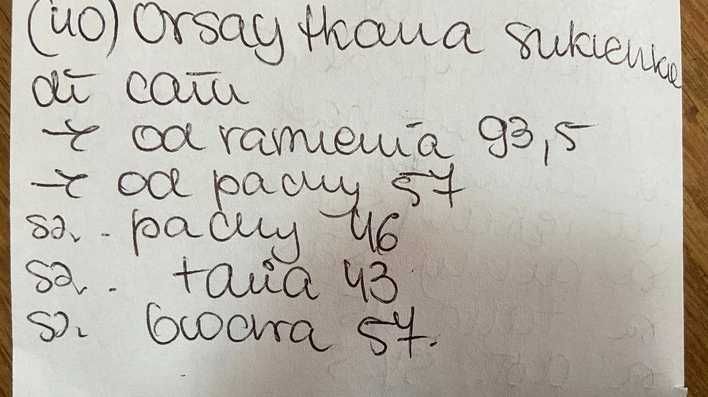 (40) Orsay tkana sukienka
dł całk
→ od ramienia 93,5
→ od pachy 57
sz. - pachy 46
sz. - talia 43
sz. biodra 57.